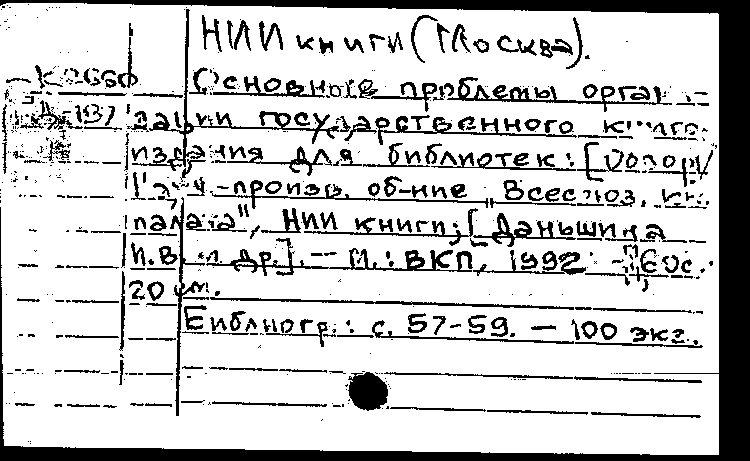 НИИ книги (Москва).
К2660 Основные проблемы органи-
Д-137 зации государственного книго-
издания для библиотек: [
-произв. об-ние "Всесоюз. кн.
палата", НИИ книги; [Даньшина
И.В. и др.]. — М.: ВКП, 1992. - 60с.;
20 см.
Библиогр.: с. 57-59. — 100 экз.